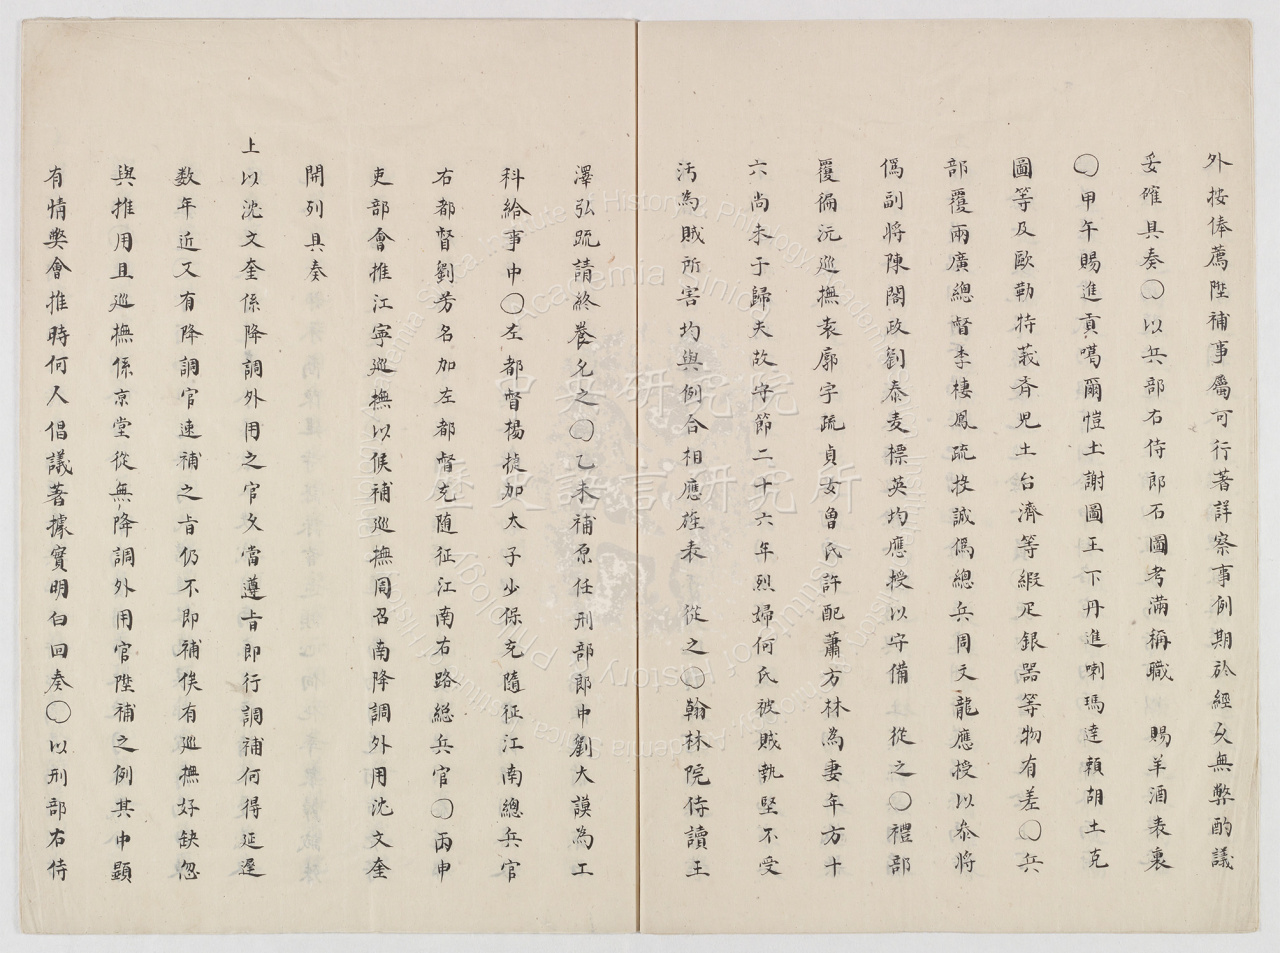 外按俸薦陞補事屬可行著詳察事例期於經久無弊酌議
妥確具奏○以兵部右侍郎石圖考滿稱職 賜羊酒表裏
○甲午賜進貢噶爾愷土謝圖王下丹進喇瑪達賴胡土克
圖等及歐勒特莪齊兒土台濟等緞疋銀器等物有差○兵
部覆兩廣總督李棲鳳疏投誠偽總兵周文龍應授以叅將
偽副將陳閣政劉泰麦標英均應授以守備 從之○禮部
覆偏沅巡撫袁廓宇疏貞女魯氏許配蕭方林為妻年方十
六尚未于歸夫故守節二十六年烈婦何氏被賊執堅不受
汚為賊所害均與例合相應旌表 從之○翰林院侍讀王
澤弘疏請終養允之○乙未補原任刑部郎中劉大謨為工
科給事中○左都督楊捷加太子少保充隨征江南總兵官
右都督劉芳名加左都督充随征江南右路總兵官○丙申
吏部會推江寧巡撫以候補巡撫周召南降調外用沈文奎
開列具奏
上以沈文奎係降調外用之官久當遵旨即行調補何得延遲
数年近又有降調官速補之旨仍不即補俟有巡撫好缺忽
與推用且巡撫係京堂從無降調外用官陞補之例其中顯
有情獘會推時何人倡議著據實明白回奏○以刑部右侍
中央研究院
歷史語言研究所